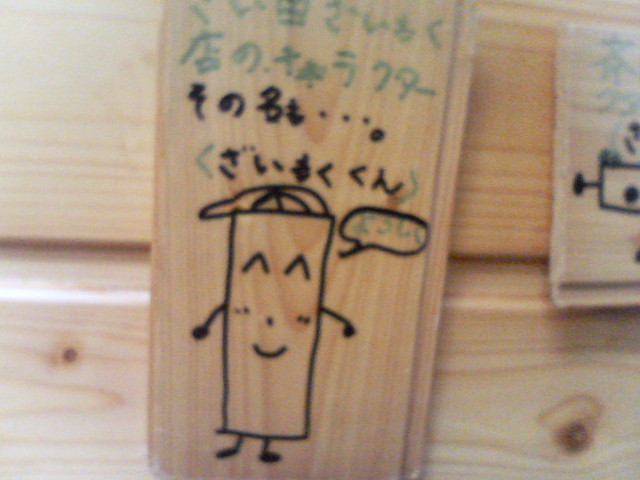 ざいもく
店のキャラクター
その名も・・・。
〈ざいもくくん〉
よろしく